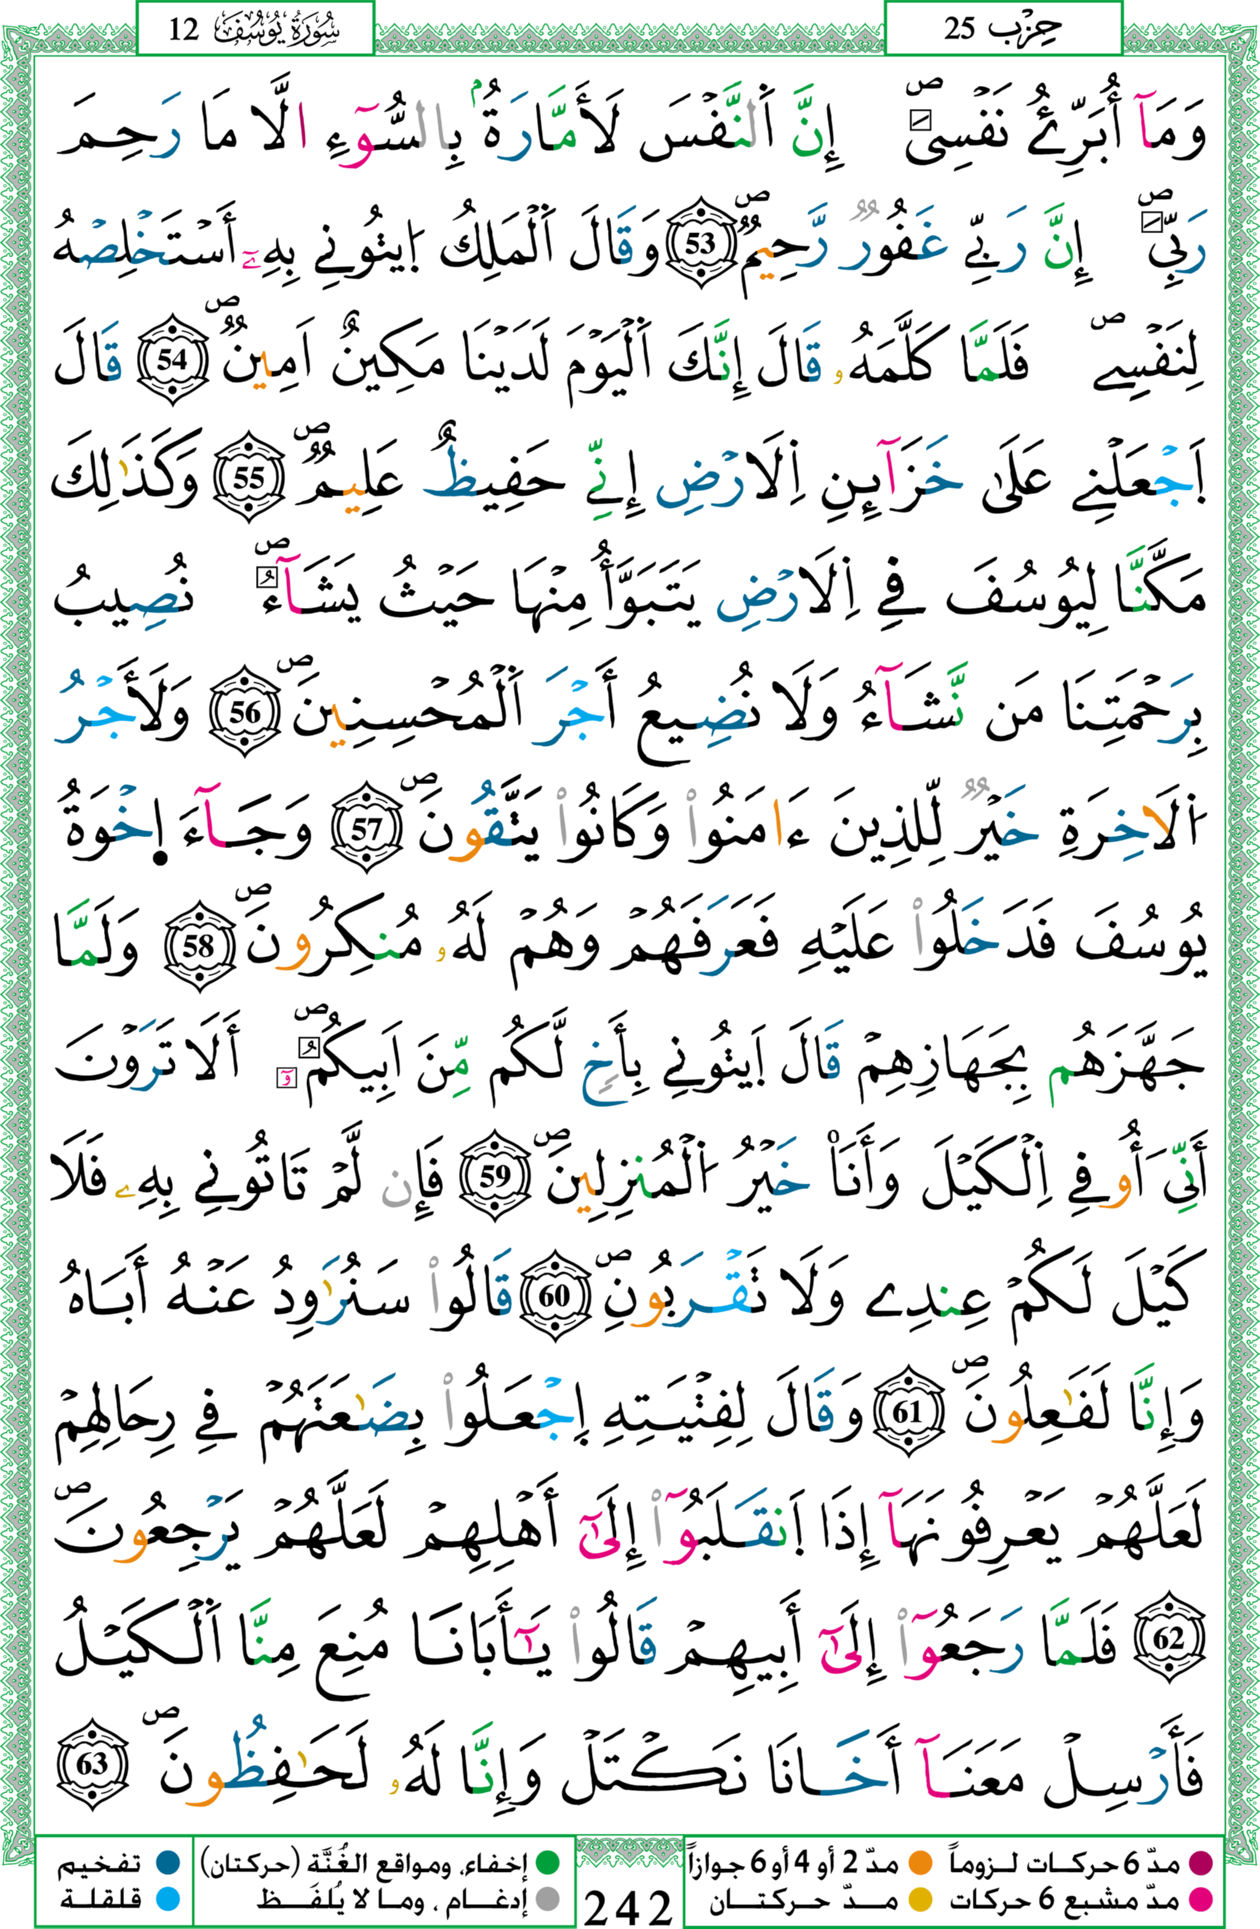 حِزْب 25
سُورَةُ يُوسُفَ 12
وَمَآ أُبَرِّئُ نَفْسِىَ إِنَّ اَ۬لنَّفْسَ لَأَمَّارَةُۢ بِالسُّوٓءِ الَّا مَا رَحِمَ
رَبِّىَ إِنَّ رَبِّے غَفُورٞ رَّحِيمٞ 53 وَقَالَ اَ۬لْمَلِكُ اُ۪يتُونِے بِهِۦٓ أَسْتَخْلِصْهُ
لِنَفْسِے فَلَمَّا كَلَّمَهُۥ قَالَ إِنَّكَ اَ۬لْيَوْمَ لَدَيْنَا مَكِينٌ اَمِينٞ 54 قَالَ
اَ۪جْعَلْنِے عَلَىٰ خَزَآئِنِ اِ۬لَارْضِ إِنِّے حَفِيظٌ عَلِيمٞ 55 وَكَذَٰلِكَ
مَكَّنَّا لِيُوسُفَ فِے اِ۬لَارْضِ يَتَبَوَّأُ مِنْهَا حَيْثُ يَشَآءُ نُصِيبُ
بِرَحْمَتِنَا مَن نَّشَآءُ وَلَا نُضِيعُ أَجْرَ اَ۬لْمُحْسِنِينَ 56 وَلَأَجْرُ
اُ۬لَاخِرَةِ خَيْرٞ لِّلذِينَ ءَامَنُواْ وَكَانُواْ يَتَّقُونَ 57 وَجَآءَ اِخْوَةُ
يُوسُفَ فَدَخَلُواْ عَلَيْهِ فَعَرَفَهُمْ وَهُمْ لَهُۥ مُنكِرُونَ 58 وَلَمَّا
جَهَّزَهُم بِجَهَازِهِمْ قَالَ اَ۪يتُونِے بِأَخٖ لَّكُم مِّنَ اَبِيكُمُۥٓ أَلَا تَرَوْنَ
أَنِّىَ أُوفِے اِ۬لْكَيْلَ وَأَنَا۠ خَيْرُ اُ۬لْمُنزِلِينَ 59 فَإِن لَّمْ تَاتُونِے بِهِۦ فَلَا
كَيْلَ لَكُمْ عِندِے وَلَا تَقْرَبُونِ 60 قَالُواْ سَنُرَٰوِدُ عَنْهُ أَبَاهُ
وَإِنَّا لَفَٰعِلُونَ 61 وَقَالَ لِفِتْيَتِهِ اِ۪جْعَلُواْ بِضَٰعَتَهُمْ فِے رِحَالِهِمْ
لَعَلَّهُمْ يَعْرِفُونَهَآ إِذَا اَ۪نقَلَبُوٓاْ إِلَىٰٓ أَهْلِهِمْ لَعَلَّهُمْ يَرْجِعُونَ
62 فَلَمَّا رَجَعُوٓاْ إِلَىٰٓ أَبِيهِمْ قَالُواْ يَٰٓأَبَانَا مُنِعَ مِنَّا اَ۬لْكَيْلُ
فَأَرْسِلْ مَعَنَآ أَخَانَا نَكْتَلْ وَإِنَّا لَهُۥ لَحَٰفِظُونَ 63
مدّ 6 حركات لـزوماً مدّ 2 أو 4 أو 6 جوازاً
مدّ مشبع 6 حركات مدّ حركتـــان
242
إخفاء، ومواقع الغُنَّة (حركتان) تفخيم
إدغام ، وما لا يُلفَظ قلقلة